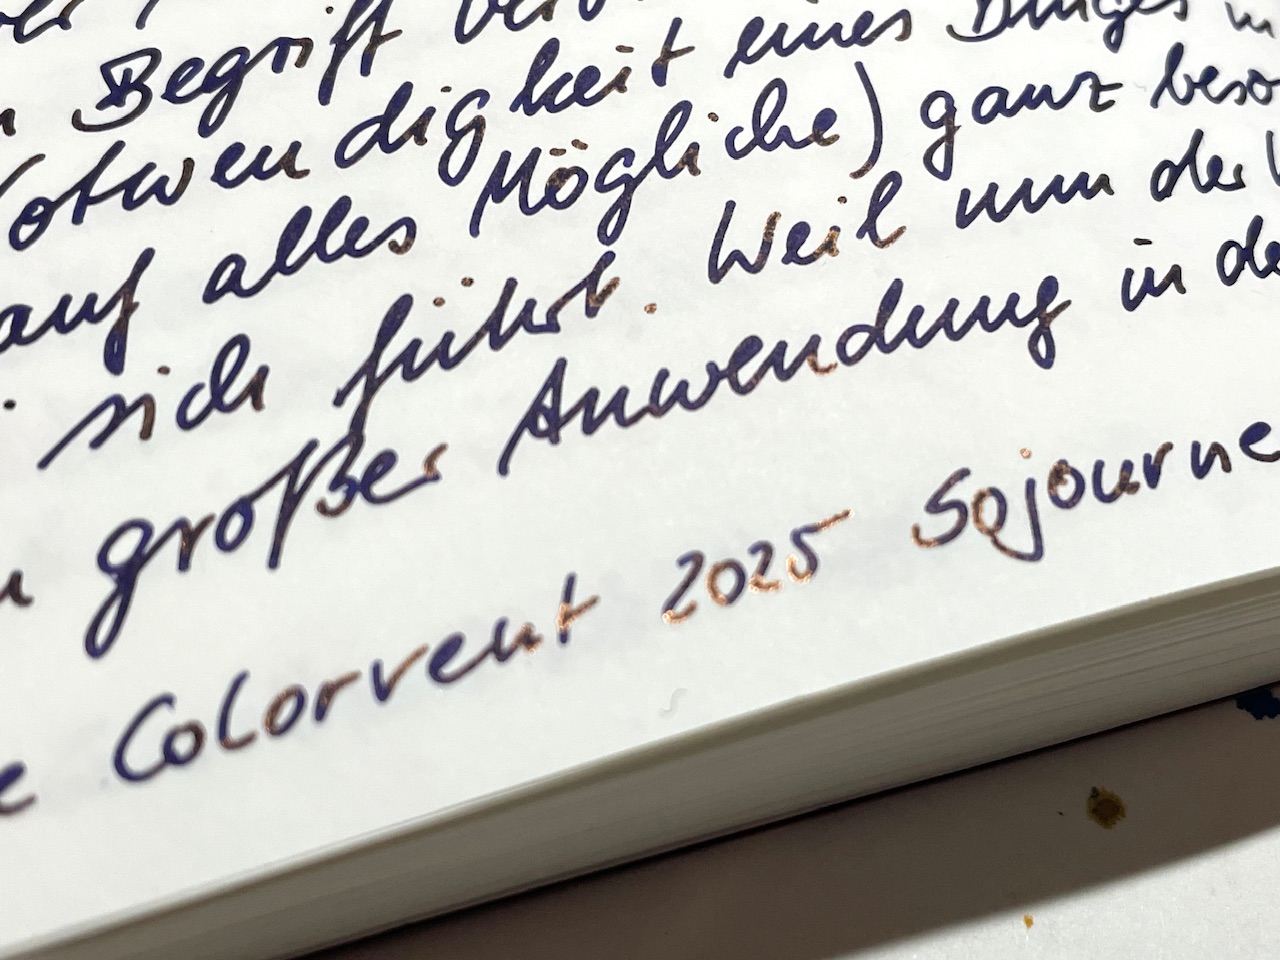 Begriff
Notwendigkeit eines Dinges
auf alles Mögliche) ganz
sich führt. Weil nun der
großer Anwendung in
Colorvent 2025 Sojourne